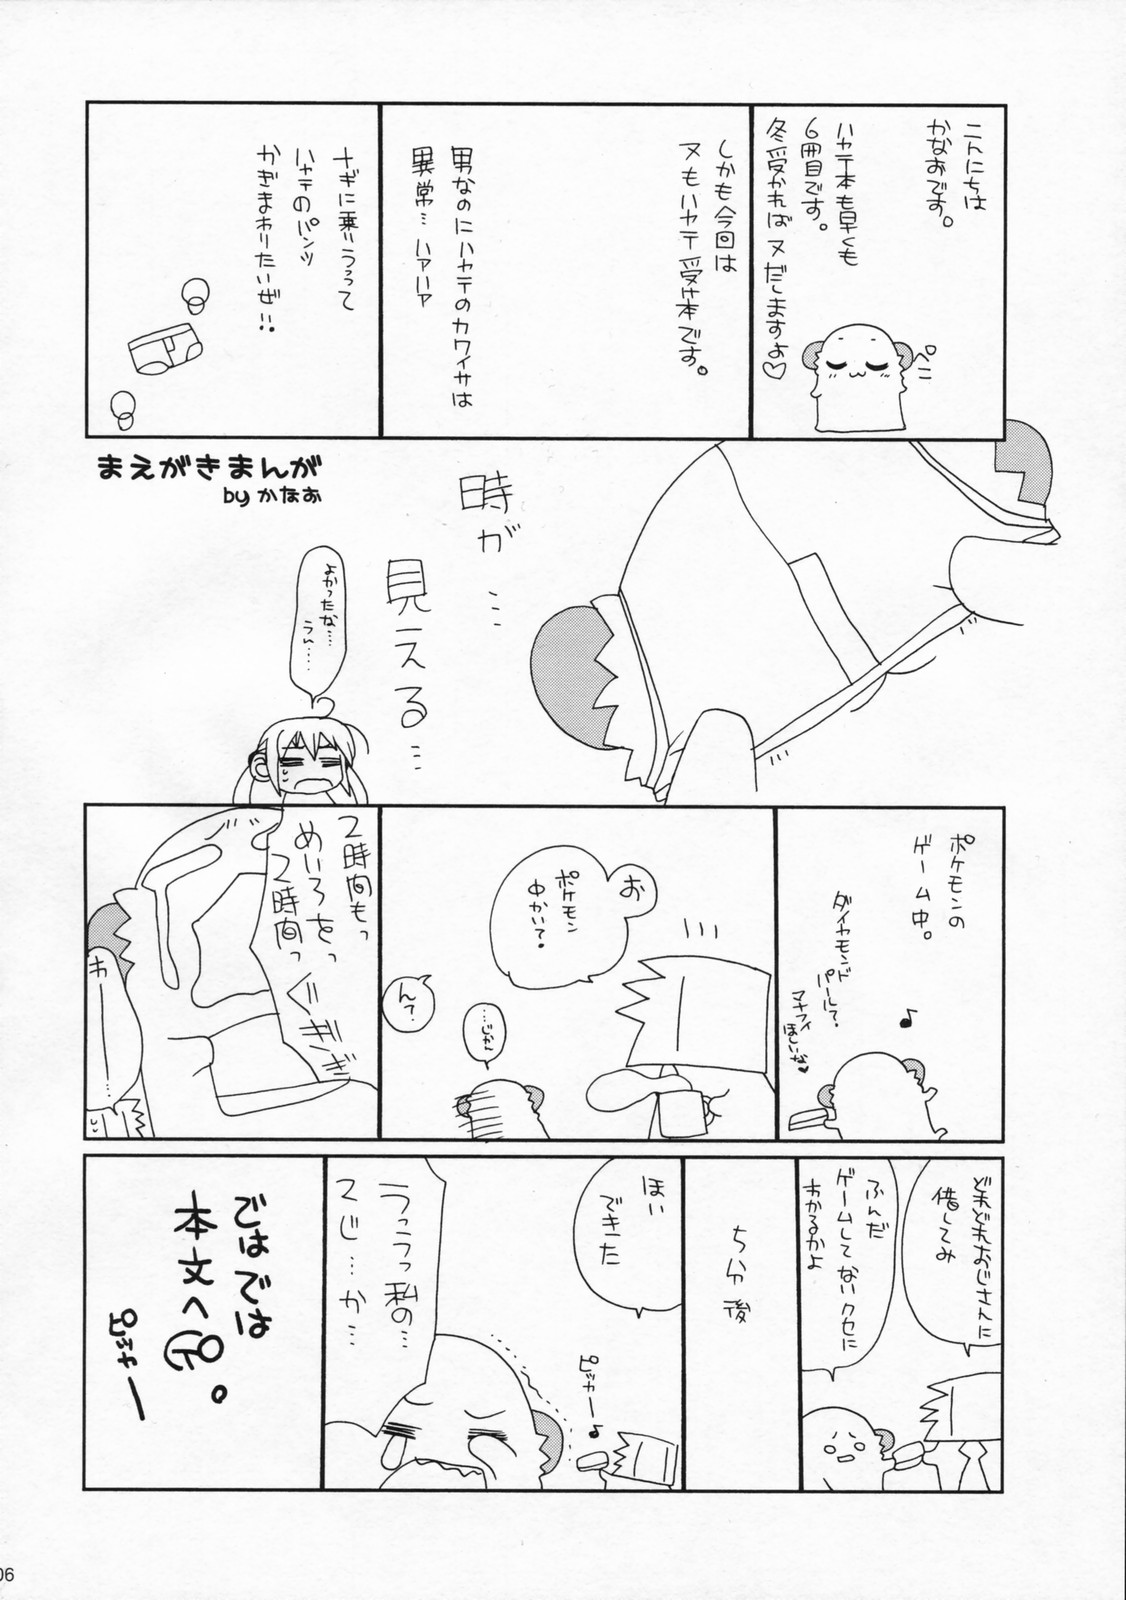 こんにちは
かなおです。
ハヤテ本も早くも
6冊目です。
冬受かればヌだしますよ♡
ペコ
しかも今回は
ヌもハヤテ受け本です。
男なのにハヤテのカワイサは
異常…ハァハァ
ナギに乗りうつって
ハヤテのパンツ
かぎまわりたいぜ!!
まえがきまんが
by かなお
時が…
見える…
よかったな…
うん……
ポケモンの
ゲーム中。
ダイヤモンド
パールで。
マナフィ
ほしいな♥
♪
お
ポケモン
中かい?
…じかん
んで。
2時間もっ
めいろをっ
2時間っ
ぐぎぎ
わ
どれどれおじさんに
借してみ
ふんだ
ゲームしてないクセに
わかるかよ
5分後
ほい
できた
ピッカー♪
うっうっ私の…
2じ…か…
ではでは
本文へGO。
ピッカー
06